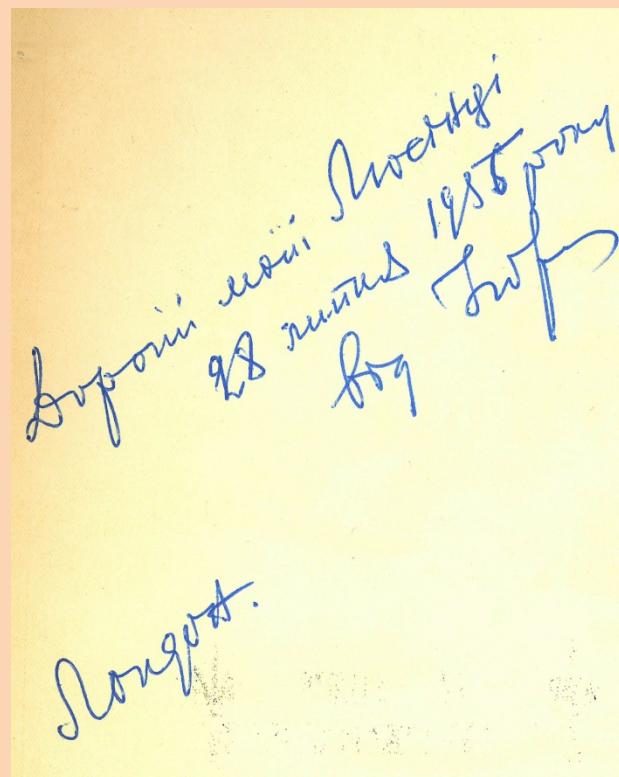 Дорогій моїй
28 липня 1956 року
від
Лондон.